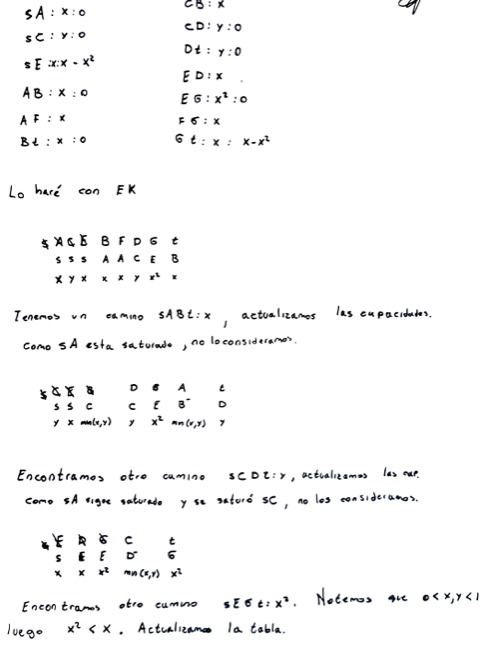 SA : x : 0
CB : x
SC : y : 0
CD : y : 0
SE : x : x - x²
Dt : y : 0
AB : x : 0
ED : x
AF : x
EG : x² : 0
Bt : x : 0
FG : x
Gt : x : x-x²
Lo haré con EK
S A C E B F D G t
S S S A A C E B
x y x x x y x² x
Tenemos un camino SABt : x , actualizamos las capacidades.
Como SA esta saturado, no lo consideramos.
S C E B D G A t
S S C C E B⁻ D
y x min(x,y) y x² min(x,y) y
Encontramos otro camino SCDt : y, actualizamos las cap.
Como SA sigue saturado y se saturó SC, no los consideramos.
S E D G C t
S E E D⁻ G
x x x² min(x,y) x²
Encontramos otro camino SEGt : x². Notemos que 0 < x,y < 1
luego x² < x. Actualizamos la tabla.